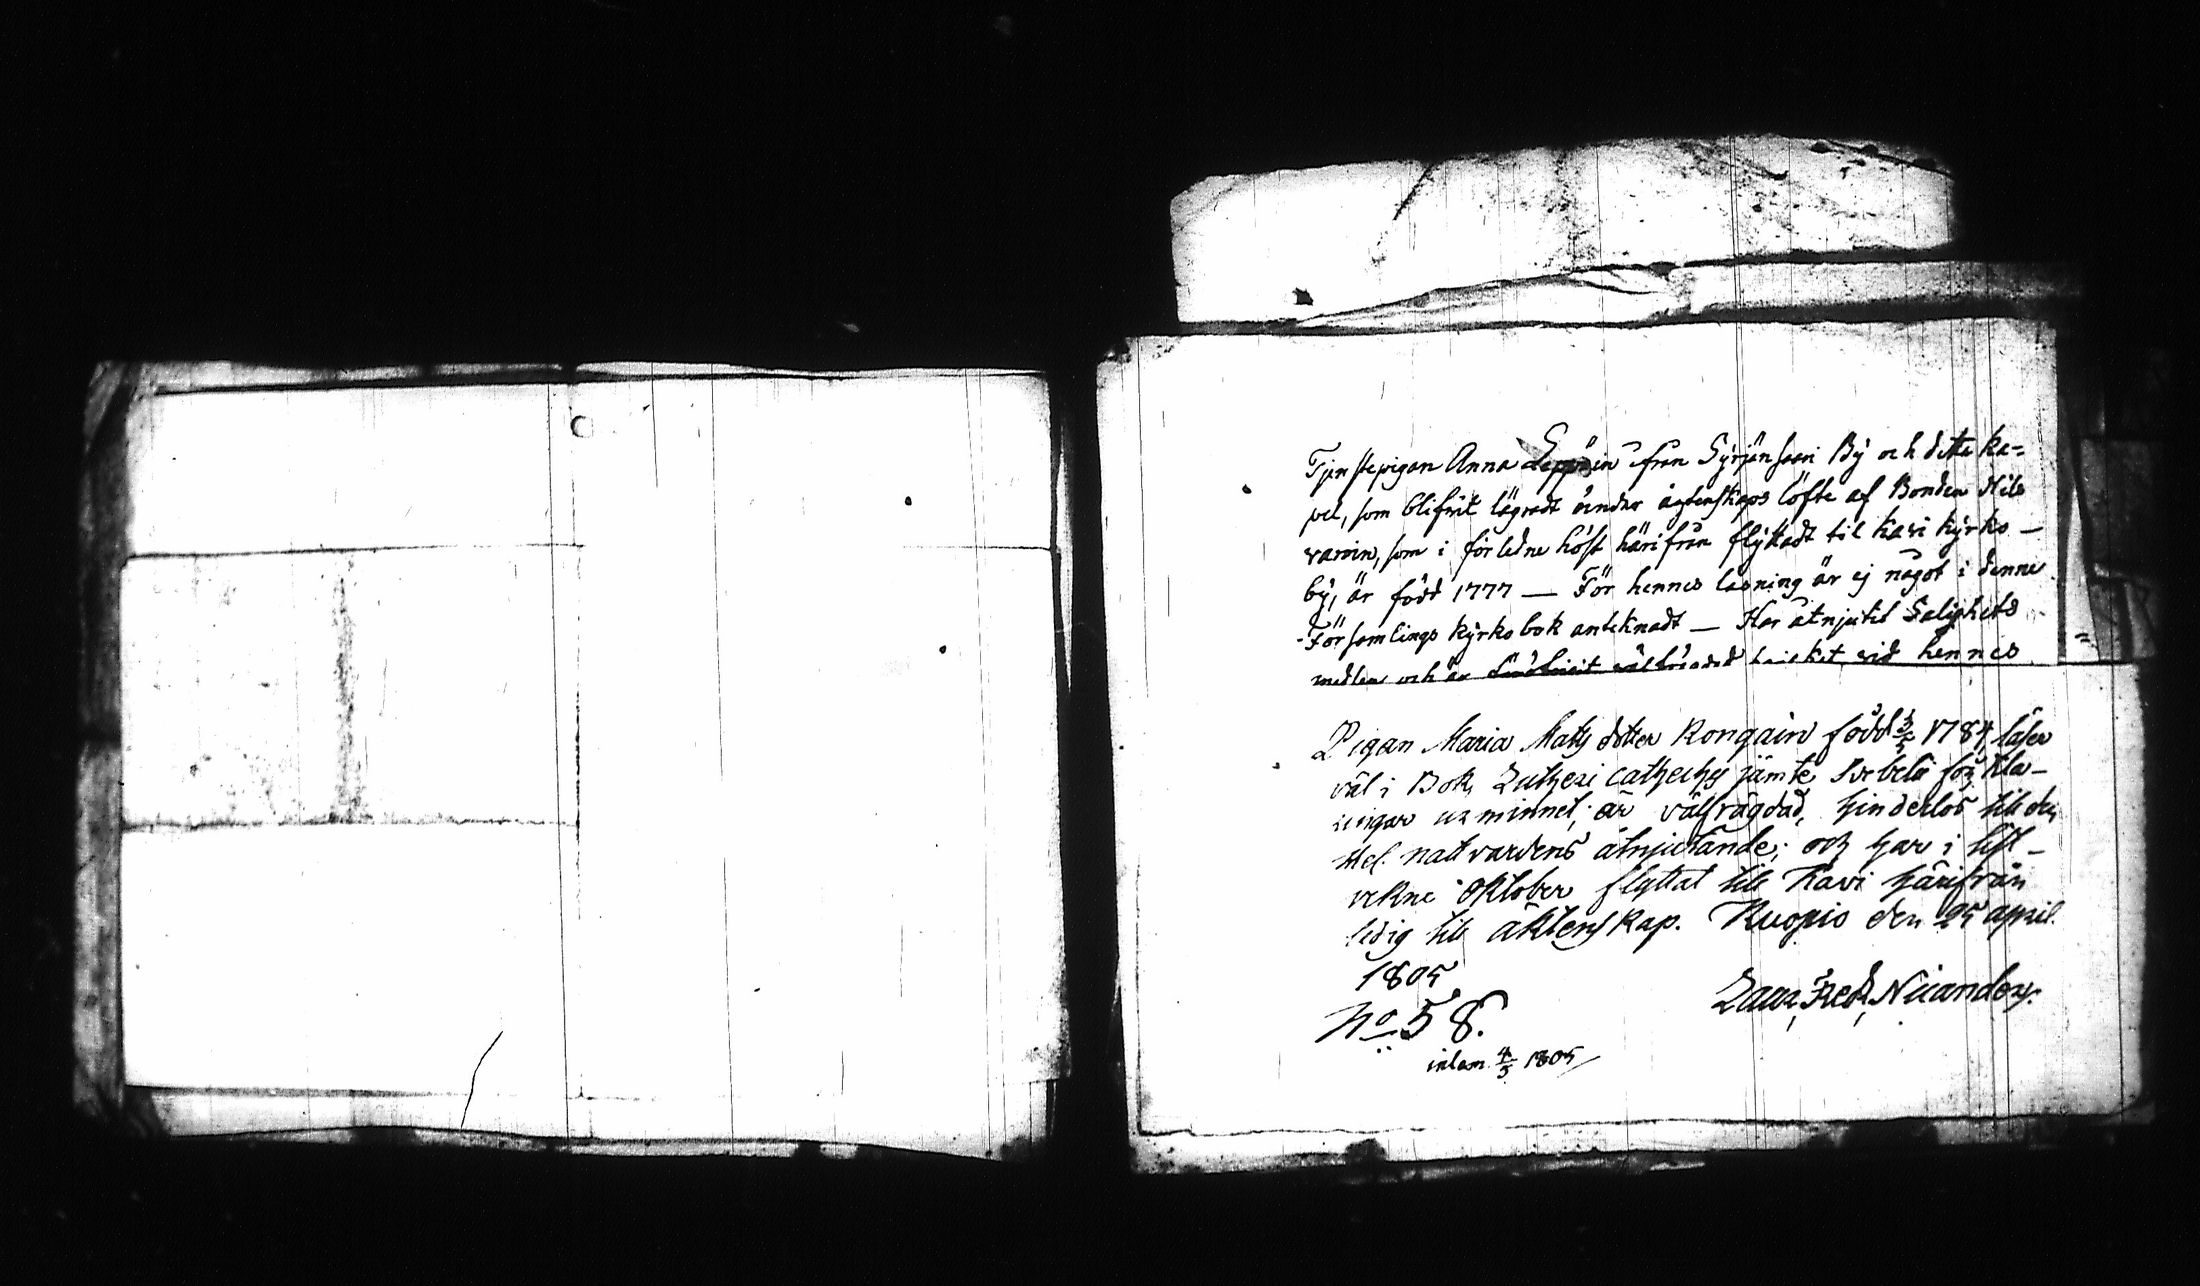 Tjenstepigan Anna Leppäin ifrån Syrjänsaari By och detta ka=
pel, som blifvit lägradt under ägtenskaps löfte af Bonden Nils
vanin, som i förledne höst härifrån flyttadt til Kavi kyrko —
by, är född 1777 — För hennes läsning är ej något i denne
Församlings kyrkobok anteknadt — Har åtnjutit Salighets
medlen och är hennes
Pigan Maria Mats dotter Rongain född 3/5 1784, läser
väl i Bok, Lutheri catheches jämte Svebelii förkla–
ringar ur minnet; är välfrägdad, hinderlös till den
Hel. nattvardens åtnjutande; och har i sist–
vekne oktober flyttat till Kavi härifrån
ledig till äktenskap. Kuopio den 25 april.
1805
Laur. Fred. Nicander.
No 58.
inlem. 4/5 1805